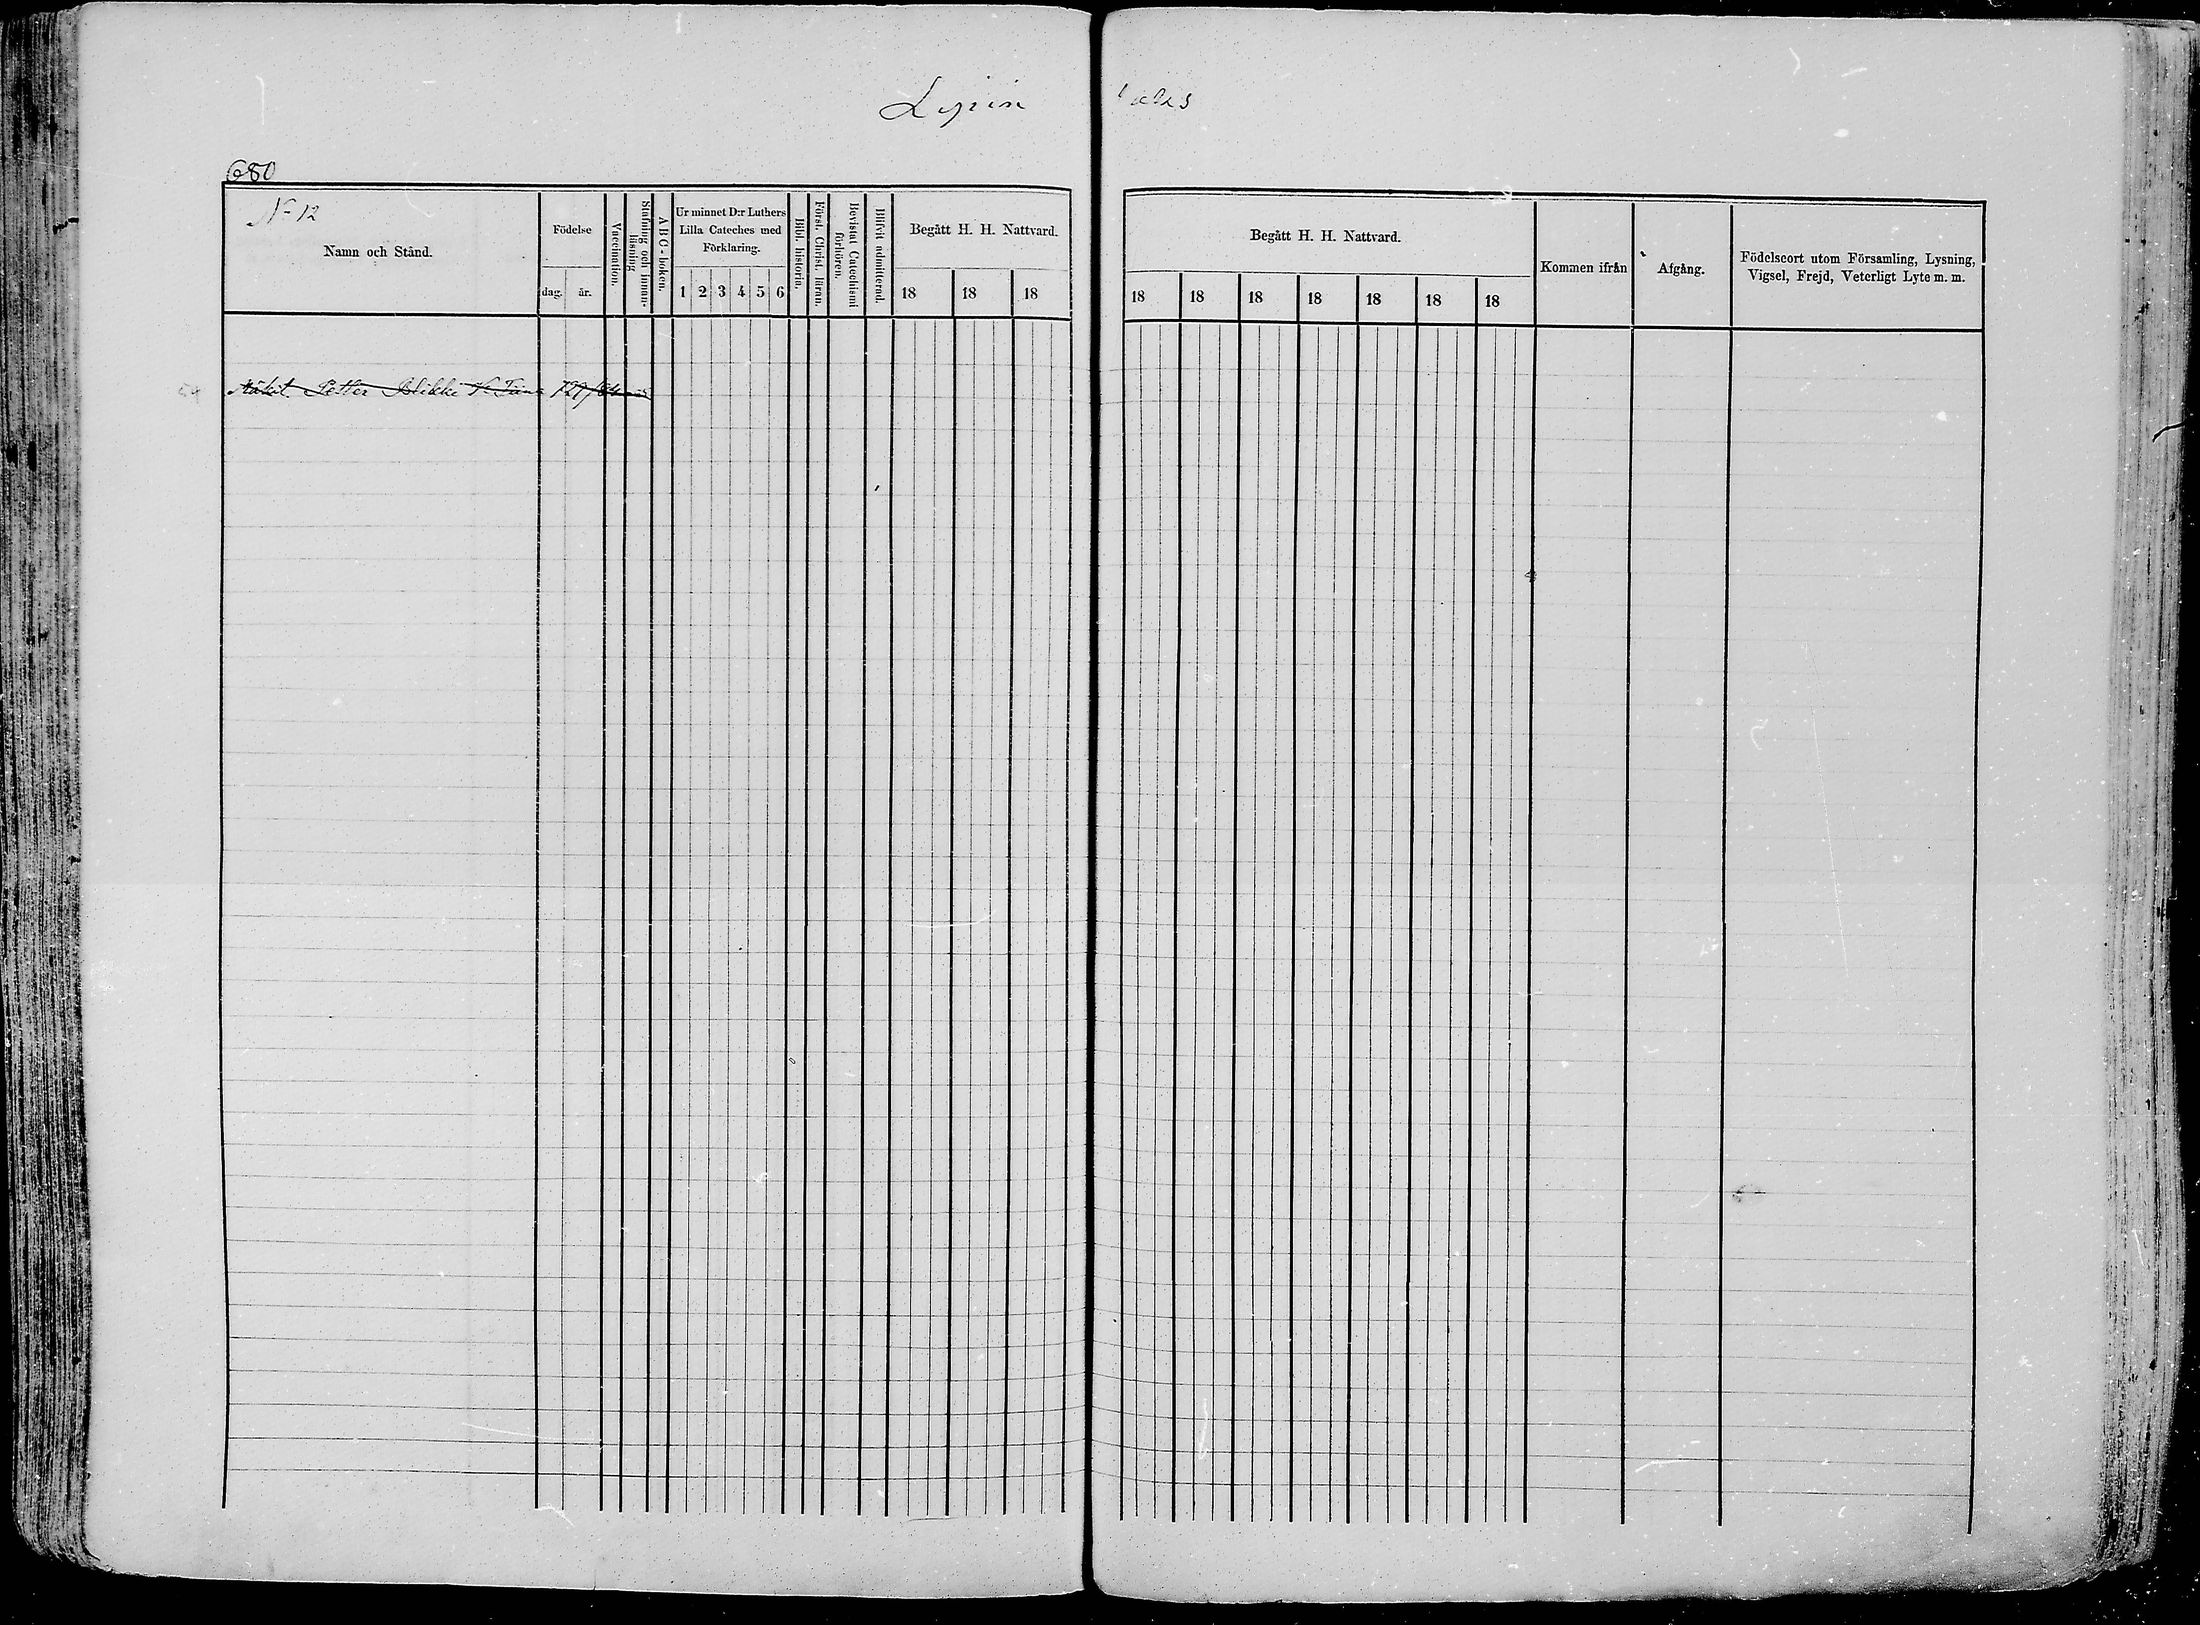 Lypin
680
N 12
Namn och Stånd.
Födelse
dag.
år.
Vaccination.
Stafning och innan-
läsning
ABC-boken.
Ur minnet D:r Luthers
Lilla Cateches med
Förklaring.
1 2 3 4 5 6
Bibl. historia.
Först. Christ. läran.
Bevistat Catechismi
förhören.
Blifvit admitterad.
Begått H. H. Nattvard.
18 18 18
Begått H. H. Nattvard.
18 18 18 18 18 18 18
Kommen ifrån
Afgång.
Födelseort utom Församling, Lysning,
Vigsel, Frejd, Veterligt Lyte m. m.
Petter